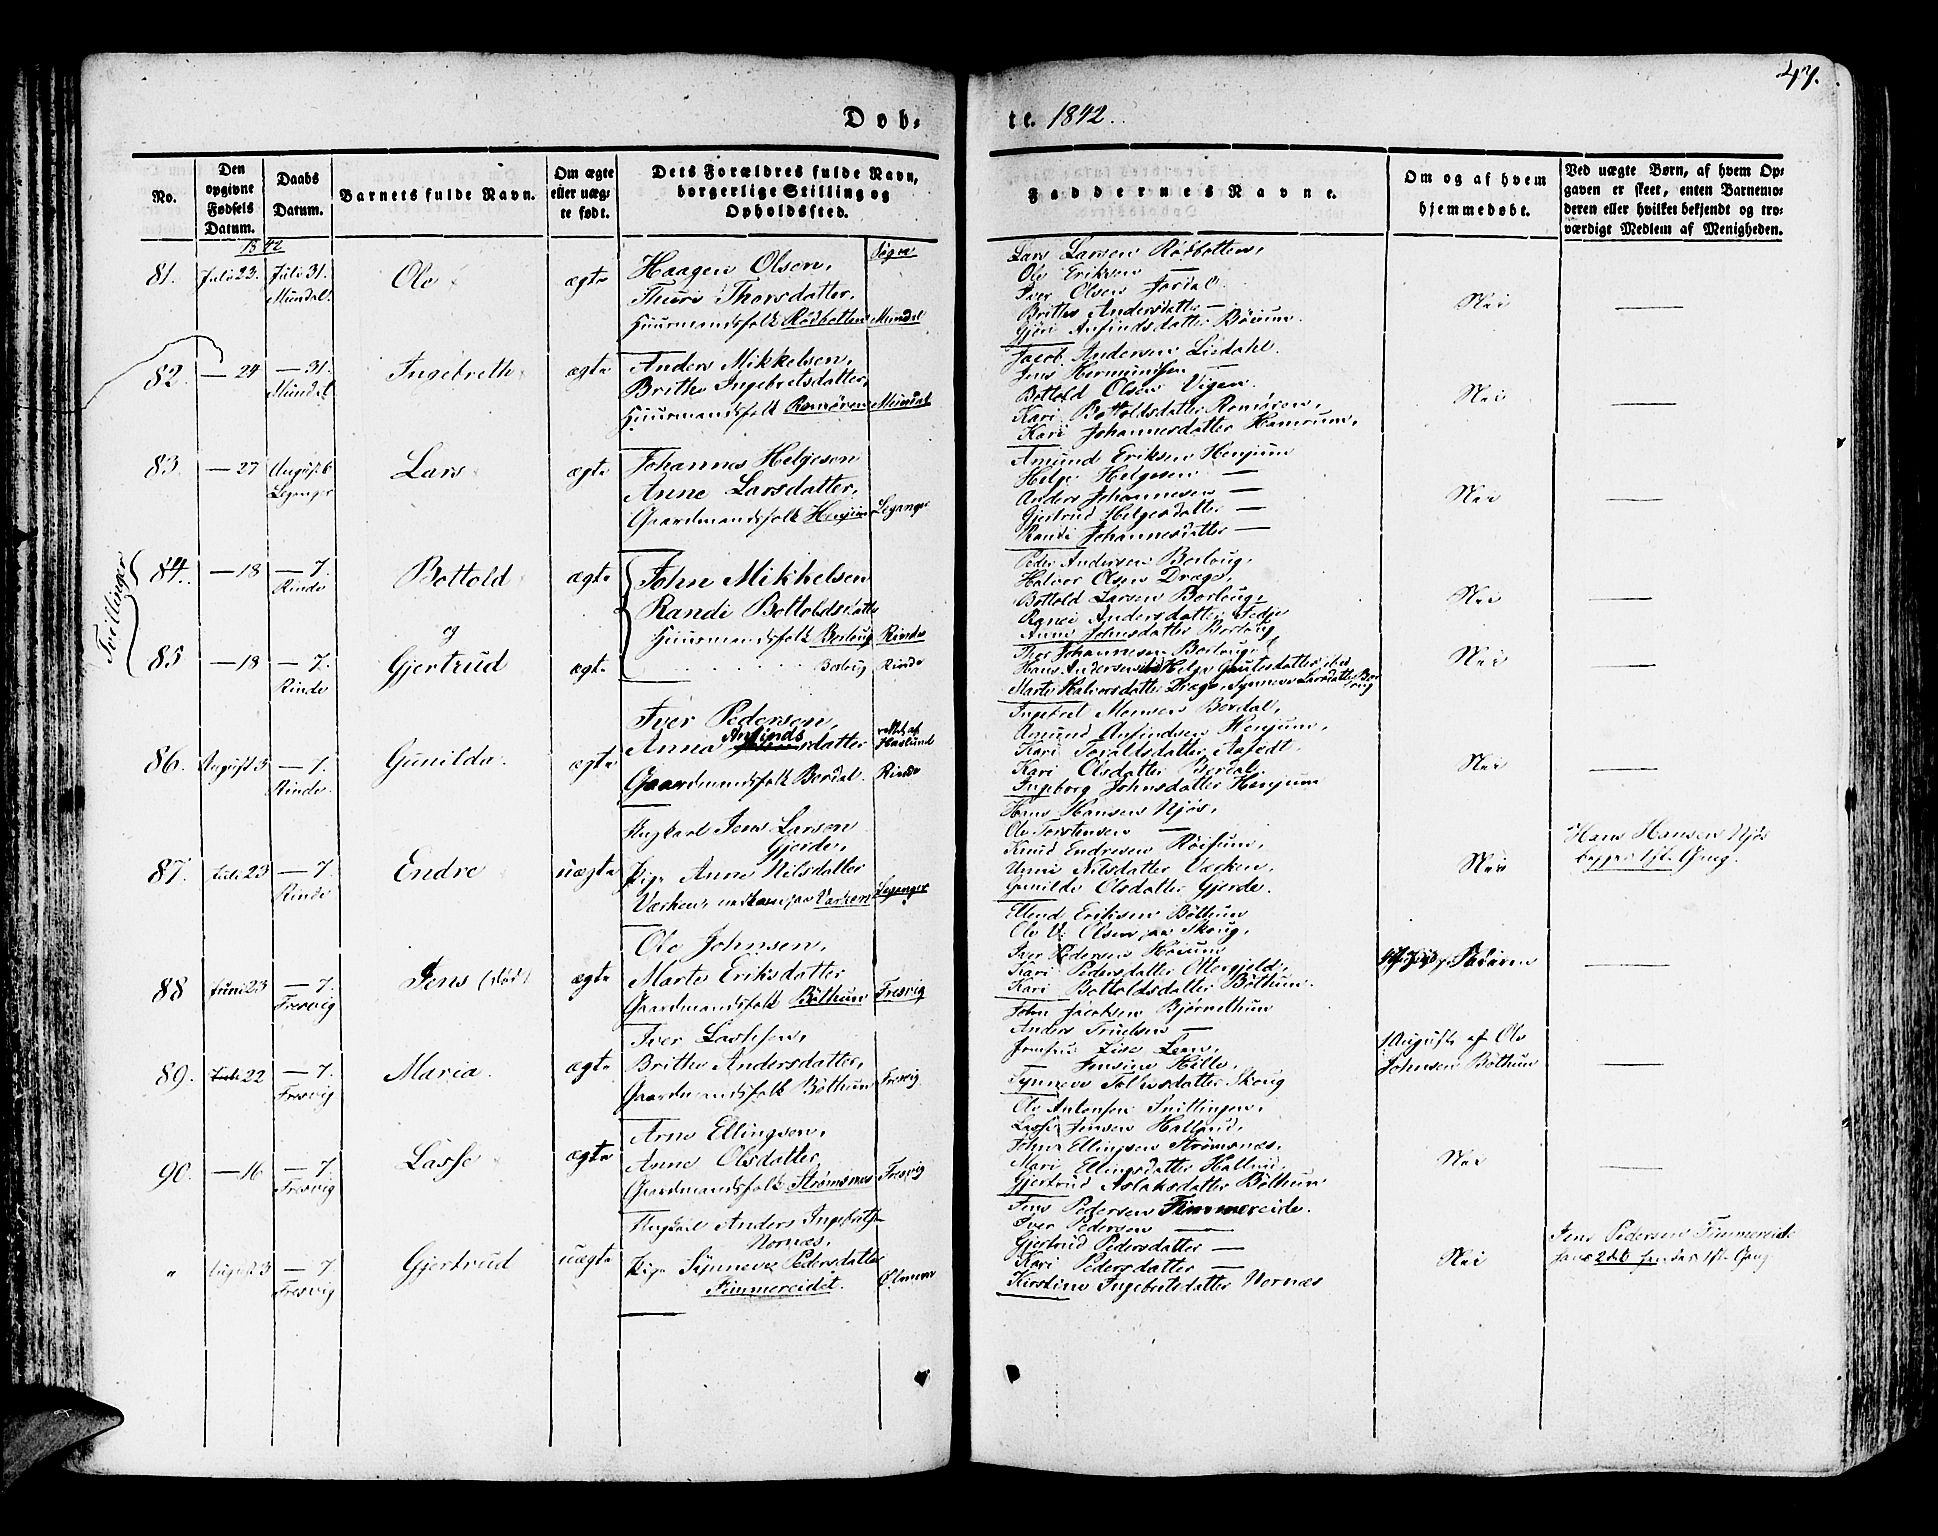 47.
Døb-
te. 1842.
No.
Den opgivne Fødsels Datum.
Daabs Datum.
Barnets fulde Navn.
Om ægte eller uægte født.
Dets Forældres fulde Navn, borgerlige Stilling og Opholdssted.
Faddernes Navne.
Om og af hvem hjemmedøbt.
Ved uægte Børn, af hvem Opgaven er skeet, enten Barnemoderen eller hvilket bekjendt og troværdigt Medlem af Menigheden.
1842
Sogn
81. Juli 23. Juli 31. Mundal. Ole ægte
Haagen Olsen,
Thuri Thorsdatter,
Huusmandsfolk Rødbotten Mundal
Lars Larsen Rødbotten,
Ole Eriksen —
Iver Olsen Jordal.
Brithe Andersdatter —
Gjøri Anfindsdatter Bøium.
Nei
82. — 24 — 31. Mundal Ingebreth ægte
Anders Mikkelsen,
Brithe Ingebretsdatter,
Huusmandsfolk Romøren Mundal
Jacob Andersen Lidahl.
Jens Hermundsen —
Bottold Olsen Vigen.
Kari Bottoldsdatter Romøren,
Kari Johannesdatter Hamrum,
Nei
83. — 27 August 6 Leganger Lars ægte
Johannes Helgesen
Anne Larsdatter,
Gaardmandsfolk Henjum Leganger
Amund Eriksen Henjum
Helge Helgesen —
Anders Johannesen —
Gjertrud Helgesdatter —
Randi Johannesdatter —
Nei
Tvillinger
84. — 18 — 7. Rinde Bottold ægte
John Mikkelsen
Randi Bottoldsdatter
Huusmandsfolk Borloug Rinde
Peder Andersen Borloug,
Halvor Olsen Drægo,
Bottold Larsen Borloug,
Ragne Andersdatter Fedje
Anne Johnsdatter Borloug
Nei
og
85 — 18 — 7. Rinde Gjertrud ægte
Borloug Rinde
Thor Johannesen Borloug,
Hans Andersen ibid Helge Gautesdatter ibid
Marte Halvorsdatter Drægo, Synneve Larsdatter Borloug
Nei
86. August 5 — 7. Rinde. Gunilda. ægte
Iver Pedersen,
Anna Anfindsdatter
rettet af Haslund
Gaardmandsfolk Berdal. Rinde
Ingebret Monsen Berdal,
Amund Anfindsen Henjum,
Kari Toraldsdatter Aafedt,
Kari Olsdatter Berdal.
Ingeborg Johnsdatter Henjum
Nei
87. Juli 23 — 7. Rinde Endre uægte
Ungkarl Jens Larsen
Gjerde,
Pige Anne Nilsdatter
Leganger
Hans Hansen Njøs,
Ole Torstensen —
Knud Endresen Røisum,
Anne Nilsdatter
Gunilde Olsdatter Gjerde.
Nei
Hans Hansen Njøs
begges 1ste Gang.
88 Juni 23 — 7. Fresvig Jens (død) ægte
Ole Johnsen,
Marte Eriksdatter
Gaardmandsfolk Bøthum Fresvig
Ellend Eriksen Bøthum
Ole Olsen Skoug,
Iver Pedersen Høium
Kari Pedersdatter Ottergjeld,
Kari Bottoldsdatter Bøthum.
89. Juli 22 — 7. Fresvig Maria. ægte
Iver Lassesen,
Brithe Andersdatter,
Gaardmandsfolk Bøthum Fresvig
John Jacobsen Bjørnethun
Anders Truelsen —
Jomfru Lise Leem,
— Jensine Hille,
Synneve Tollevsdatter Skoug
1 August af Ole
Johnsen Bøthum
90. — 16 — 7. Fresvig Lasse ægte
Arne Ellingsen,
Anne Olsdatter
Gaardmandsfolk Strømsnes Fresvig
Ole Antonsen Snillingen,
Lasse Jensen Halland,
John Ellingsen Strømsnes,
Mari Ellingsdatter
Gjertrud Aslaksdatter Bøthun
Nei
" August 3 — 7. Fresvig Gjertrud uægte
Ungkarl Anders Ingebretsen
Nornæs,
Pige Synneve Pedersdatter
Fimmereidet. Ølmem
Jens Pedersen Fimmereide.
Iver Pedersen —
Gjertrud Pedersdatter —
Kari Pedersdatter —
Kirstine Ingebretsdatter Nornæs
Nei
Jens Pedersen Fimmereide
hans 2det hendes 1ste Gang